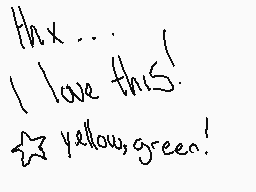 thx...
I love this!
☆ yellow,green!